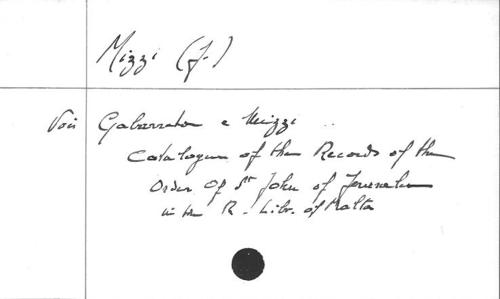 Mizzi (J.)
Voir Gabarretta e Mizzi
Catalogue of the Records of the
Order of St John of Jerusalem
in the R. Libr. of Malta